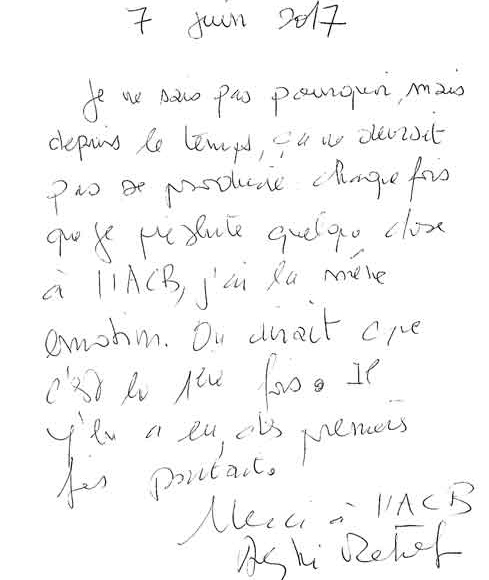 7 juin 2017
Je ne sais pas pourquoi, mais
depuis le temps, ça ne devrait
pas se produire. Chaque fois
que je présente quelque chose
à l'ACB, j'ai la même
émotion. On dirait que
c'est la 1ère fois. Il
y'en a eu, des premières
fois pourtant.
Merci à l'ACB